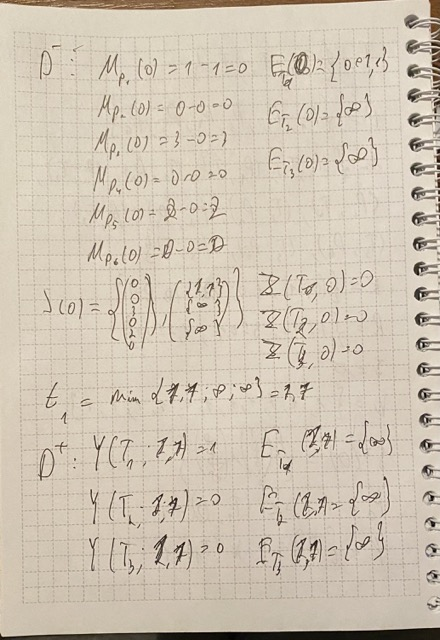 D⁻: M_P₁(0) = 1 - 1 = 0 E_T₁(0) = {0+1,1}
M_P₂(0) = 0 - 0 = 0 E_T₂(0) = {∞}
M_P₃(0) = 3 - 0 = 3 E_T₃(0) = {∞}
M_P₄(0) = 0 - 0 = 0
M_P₅(0) = 2 - 0 = 2
M_P₆(0) = 0 - 0 = 0
S(0) = {(0 0 3 0 2 0), ({1,1} {∞} {∞})} Z(T₁, 0) = 0
Z(T₂, 0) = 0
Z(T₃, 0) = 0
t₁ = min {1,1; ∞; ∞} = 1,1
D⁺: Y(T₁; 1,1) = 1 E_T₁(1,1) = {∞}
Y(T₂; 1,1) = 0 E_T₂(1,1) = {∞}
Y(T₃; 1,1) = 0 E_T₃(1,1) = {∞}